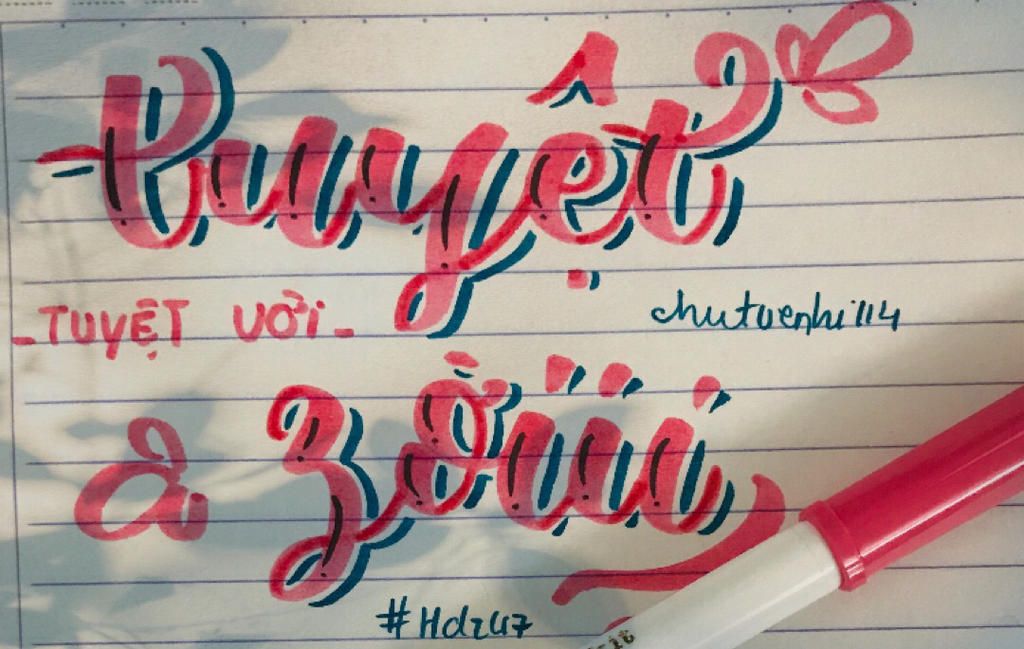 tuyệt
_TUYỆT VỜI_
chutuenhi114
a zờiii
#Hdz47